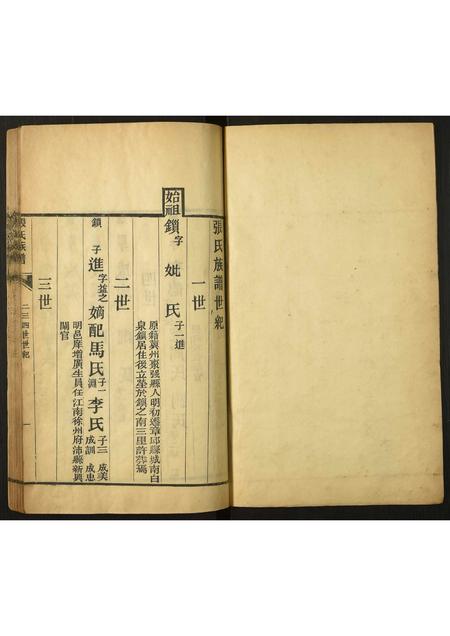 張氏族譜世紀
一世
始祖
鎖 字 妣氏 子一進
原籍冀州棗强縣人明初遷章邱縣城南白
泉鎮居住後立塋於鎮之南三里許
二世
鎖 子 進 字益之 嫡配馬氏 子一 淵 李氏 子三 成美 成訓 成忠
明邑庠增廣生員任江南徐州府沛縣新興
閘官
三世
張氏族譜
二三四世世紀
一